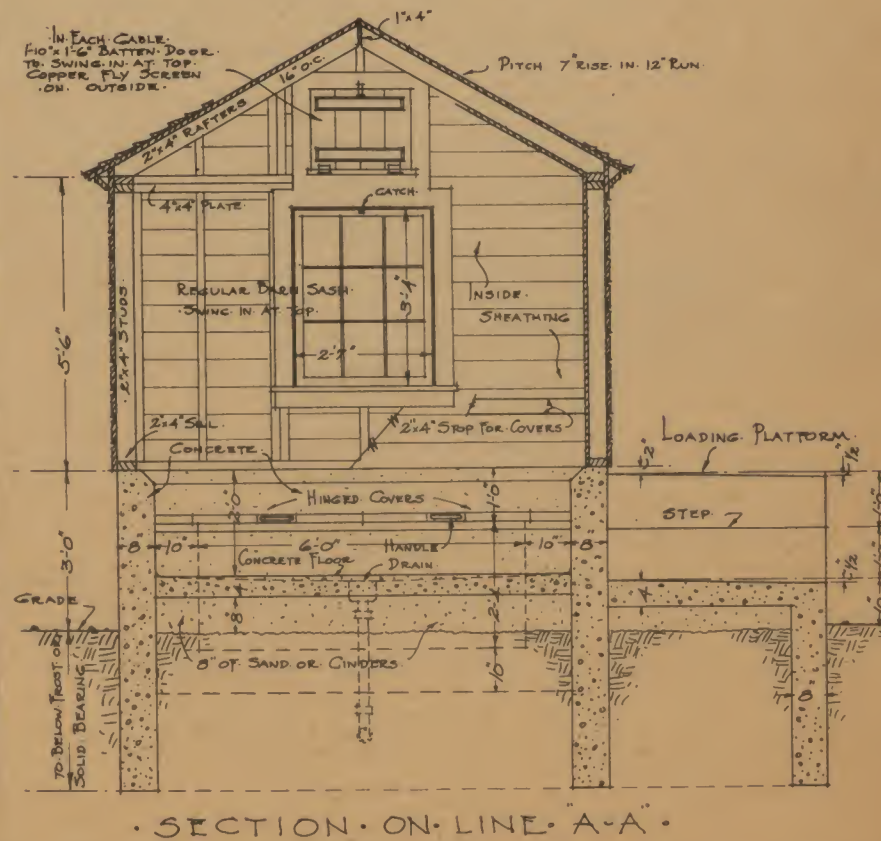 ·IN·EACH·GABLE·
1'-10"x 1'-6" BATTEN·DOOR·
TO SWING·IN·AT·TOP·
COPPER FLY SCREEN
·ON· OUTSIDE·
1"x4"
PITCH 7" RISE· IN· 12" RUN·
2"x4" RAFTERS 16" O.C.
4"x4" PLATE·
CATCH·
REGULAR BARN SASH·
·SWING·IN AT TOP·
3'-4"
2'-7"
INSIDE·
SHEATHING
5'-6"
·2"x4" STUDS
2"x4" SILL
CONCRETE
2"x4" STOP FOR·COVERS
LOADING· PLATFORM·
2"
1/2"
HINGED COVERS
2'-0"
1'-0"
STEP
8"
10"
6'-0"
HANDLE
10"
8"
CONCRETE FLOOR
DRAIN
3'-0"
2'-4"
1/2"
4
4
GRADE
8
8" OF SAND OR CINDERS
10"
8
TO·BELOW FROST OR
SOLID BEARING
·SECTION·ON·LINE·"A-A"·